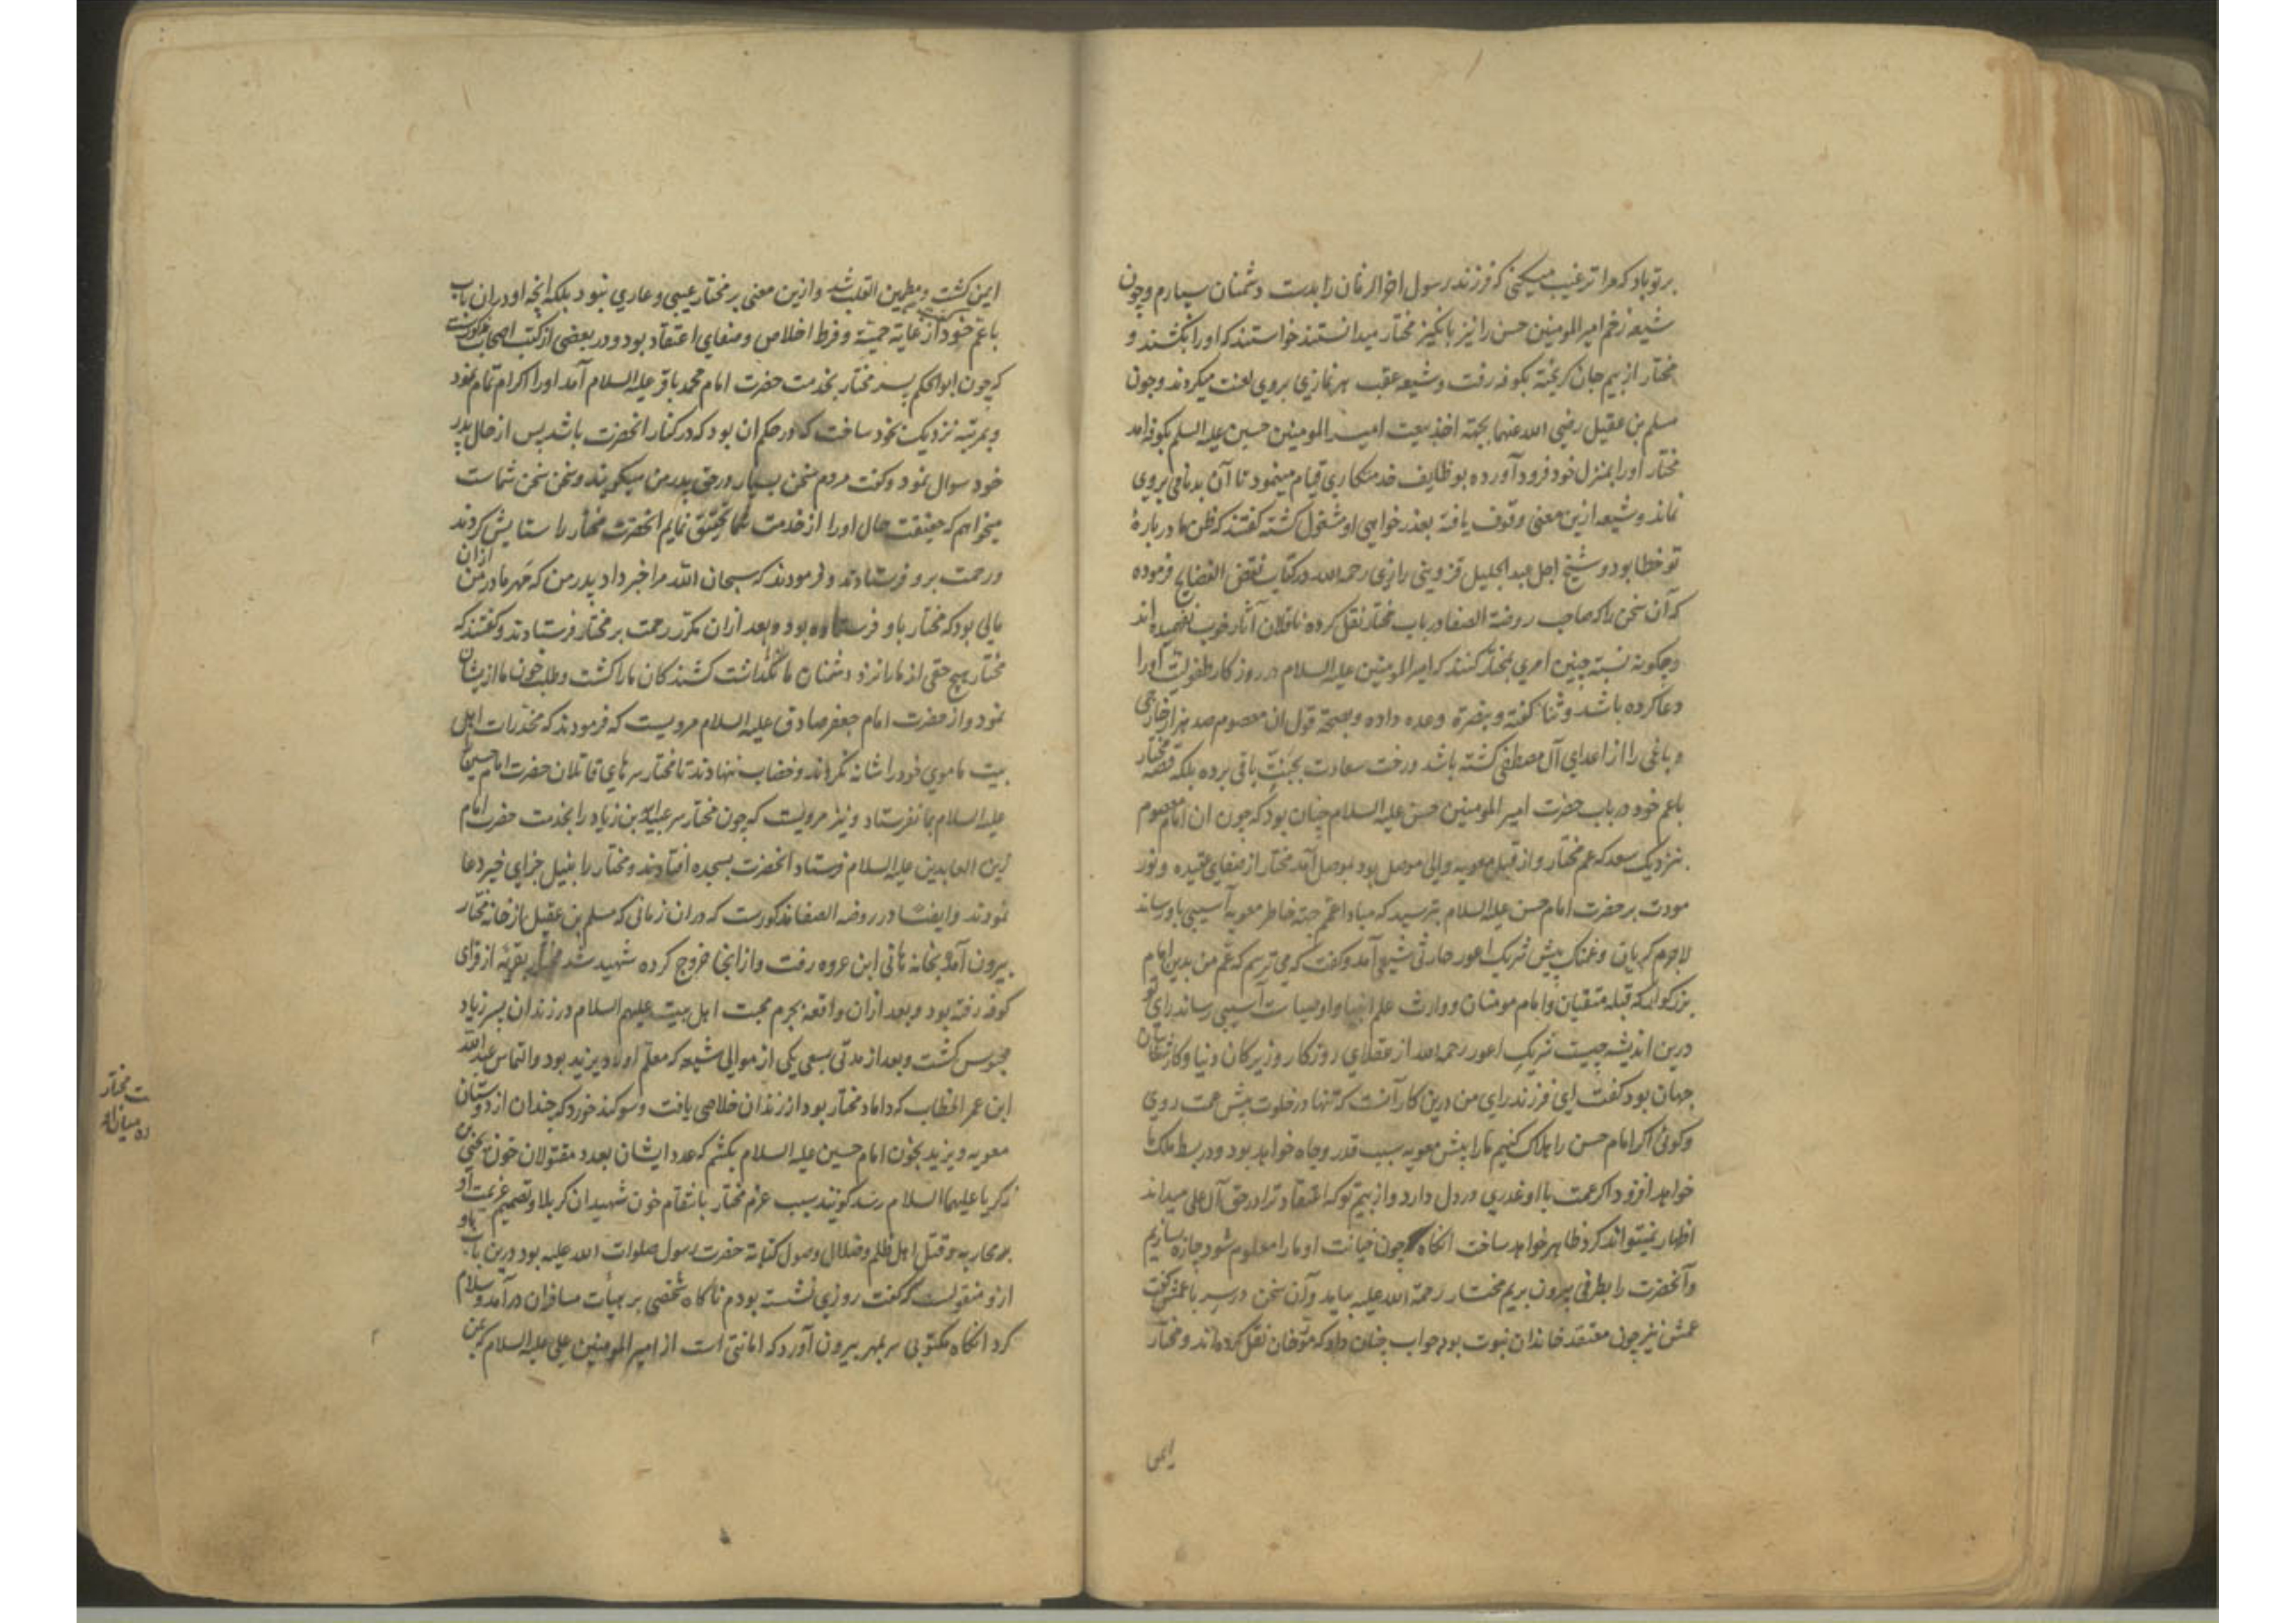 بر تو باد که مرا ترغیب میکنی که فرزند رسول اخر الزمان را بدست دشمنان سپارم و چون
شیعه زخم امیر المومنین حسن را نیز بانگیز مختار میدانستند خواستند که اورا بکشند و
مختار از بیم جان کریخته بکوفه رفت و شیعه عقب هر نمازی بروی لعنت میکردند و چون
مسلم بن عقیل رضی الله عنهما بجهته اخذ بیعت امیر المومنین حسین علیه السلم بکوفه امد
مختار اورا بمنزل خود فرود آورده بوظایف خدمتکاری قیام مینمود تا آن بدنامی بروی
نماند و شیعه ازین معنی وقوف یافته بعذر خواهی او مشغول کشته کفتند که ظن ما در بارهٔ
تو خطا بود و شیخ اجل عبد الجلیل قزوینی رازی رحمه الله در کتاب نقض الفضایح فرموده
که آن سخن را که صاحب روضة الصفا در باب مختار نقل کرده ناقلان آثار خوب نفهمیده اند
و چکونه نسبة چنین امری بمختار کنند که امیر المومنین علیه السلام در روزکار طفولیت اورا
دعا کرده باشد و ثنا کفته و بنصرة وعده داده و بصحة قول ان معصوم صد هزار خارجی
و باغی را از اعدای آل مصطفی کشته باشد درخت سعادت بجنت باقی برده بلکه قصه مختار
باعم خود در باب حضرت امیر المومنین حسن علیه السلام چنان بود که چون ان امام معصوم
بنزدیک سعد که عم مختار و از قبل معویه والی موصل بود بموصل آمد مختار از صفای عقیده و نور
مودت بر حضرت امام حسن علیه السلام بترسید که مبادا عم جهته خاطر معویه آسیبی باو رساند
لاجرم کریان و غمناک پیش شریک اعور حارثی شیعی آمد و کفت که می ترسم که عم من بدین امام
بزرکوار که قبله متقیان و امام مومنان و وارث علم انبیا و اوصیا ست آسیبی رساند رای تو
درین اندیشه چیست شریک اعور رحمه الله از عقلای روزکار و زیرکان دنیا و کارشناسان
جهان بود کفت ای فرزند رای من درین کار آنست که تنها در خلوت پیش عمت روی
و کوئی اکر امام حسن را هلاک کنیم مارا پیش معویه سبب قدر و جاه خواهد بود و در بسط ملک ما
خواهد افزود اکر عمت با او غدری در دل دارد و از بیم تو که اعتقاد ترا در حق آل علی میداند
اظهار نمیتواند کرد ظاهر خواهد ساخت انکاه چون خیانت او مارا معلوم شود چاره سازیم
و آنحضرت را بطرفی بیرون بریم مختار رحمة الله علیه بیامد و آن سخن در سر با عمش کفت
عمش نیز چون معتقد خاندان نبوت بود جواب چنان داد که مورخان نقل کرده اند و مختار
ایمن
ایمن کشت و مطمین القلب شد و ازین معنی بر مختار عیبی و عاری نبود بلکه انچه او دران باب
باعم خود از غایة حمیة و فرط اخلاص و صفای اعتقاد بود و در بعضی از کتب اصحاب مذکورست
که چون ابو الحکم پسر مختار بخدمت حضرت امام محمد باقر علیه السلام آمد اورا اکرام تمام نمود
و بمرتبه نزدیک بخود ساخت که در حکم ان بود که در کنار انحضرت باشد پس از حال پدر
خود سوال نمود و کفت مردم سخن بسیار در حق پدر من میکویند و سخن سخن شماست
میخواهم که حقیقت حال اورا از خدمت شما تحقیق نمایم انحضرت مختار را ستایش کردند
و رحمت برو فرستادند و فرمودند که سبحان الله مرا خبر داد پدر من که مهر مادر من ازان
مالی بود که مختار باو فرستاده بود و بعد ازان مکرر رحمت بر مختار فرستادند و کفتند که
مختار هیچ حقی از مارا نزد دشمنان ما نگذاشت کشندکان مارا کشت و طلب خون ما از یشان
نمود و از حضرت امام جعفر صادق علیه السلام مرویست که فرمودند که مخدرات اهل
بیت ما موی خود را شانه نکردند و خضاب ننهادند تا مختار سرهای قاتلان حضرت امام حسین
علیه السلام بما نفرستاد و نیز مرویست که چون مختار سر عبید الله بن زیاد را بخدمت حضرت امام
زین العابدین علیه السلام فرستاد انحضرت بسجده افتادند و مختار را بنیل جزای خیر دعا
نمودند و ایضا در روضه الصفا مذکورست که دران زمانی که مسلم بن عقیل از خانه مختار
بیرون آمد بخانه هانی ابن عروه رفت و از انجا خروج کرده شهید شد مختار بقریه از قرای
کوفه رفته بود و بعد ازان واقعه بجرم محبت اهل بیت علیهم السلام در زندان پسر زیاد
محبوس کشت و بعد از مدتی بسعی یکی از موالی شیعه که معلم اولاد یزید بود و التماس عبد الله
ابن عمر الخطاب که داماد مختار بود از زندان خلاصی یافت و سوکند خورد که چندان از دوستان
معویه و یزید بخون امام حسین علیه السلام بکشم که عدد ایشان بعدد مقتولان خون یحیی بن
زکریا علیهما السلام رسد کویند سبب عزم مختار بانتقام خون شهیدان کربلا و تصمیم عزیمت او
بمحاربه و قتل اهل ظلم و ضلال وصول کتابة حضرت رسول صلوات الله علیه بود درین باب باو
ازو منقولست که کفت روزی نشسته بودم ناکاه شخصی بر هیأت مسافران درآمد و سلام
کرد انکاه مکتوبی سر بمهر بیرون آورد که امانتی است از امیر المومنین علی علیه السلام که بمن
ت مختار